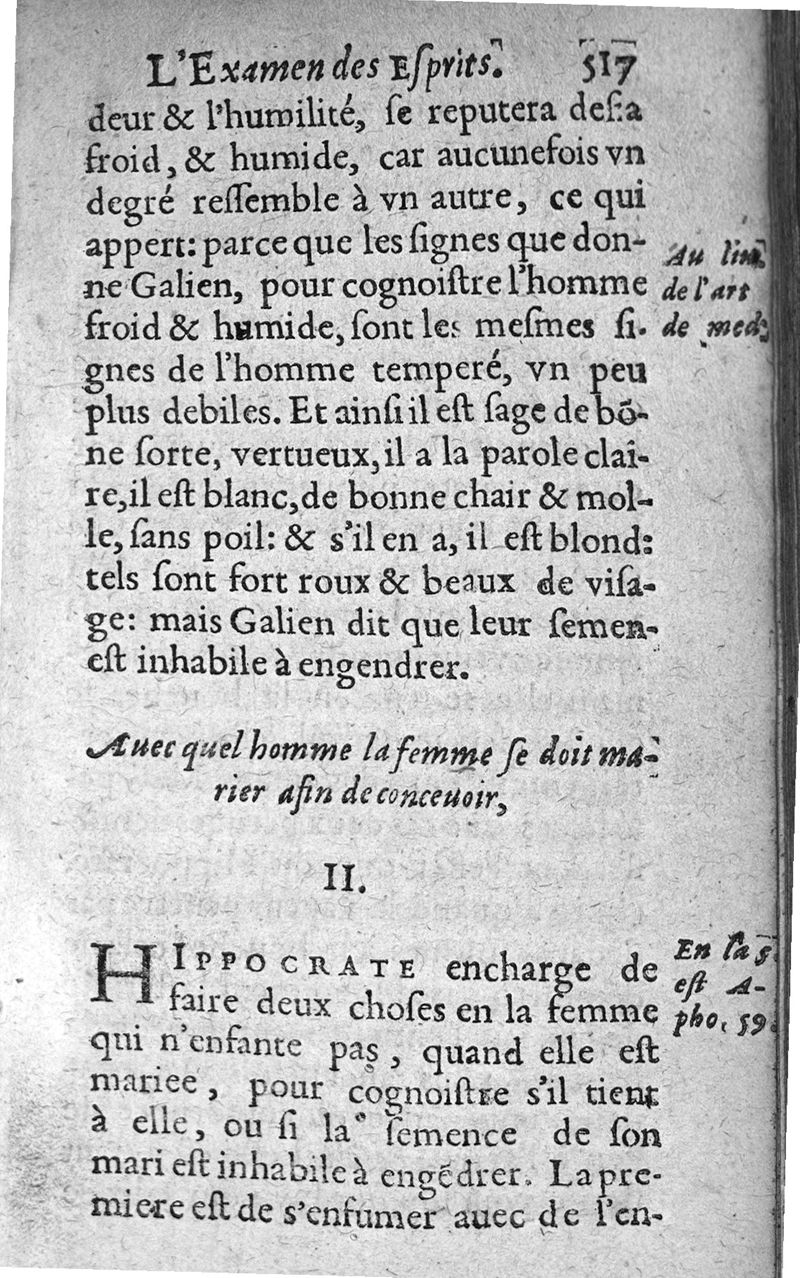 L'Examen des Eſprits. 517
deur & l'humilité, ſe reputera deſia
froid, & humide, car aucunefois vn
degré reſſemble à vn autre, ce qui
appert: parce que les ſignes que don-
ne Galien, pour cognoiſtre l'homme
froid & humide, ſont les meſmes ſi-
gnes de l'homme temperé, vn peu
plus debiles. Et ainſi il eſt ſage de bõ-
ne ſorte, vertueux, il a la parole clai-
re, il eſt blanc, de bonne chair & mol-
le, ſans poil: & s'il en a, il eſt blond:
tels ſont fort roux & beaux de viſa-
ge: mais Galien dit que leur ſemen-
eſt inhabile à engendrer.
Au
de l'art
de med.
Auec quel homme la femme ſe doit ma-
rier afin de conceuoir,
II.
HIPPOCRATE encharge de
faire deux choſes en la femme
qui n'enfante pas, quand elle eſt
mariee, pour cognoiſtre s'il tient
à elle, ou ſi la ſemence de ſon
mari eſt inhabile à engẽdrer. La pre-
miere eſt de s'enfumer auec de l'en-
En la 5.
eſt A-
pho. 59.